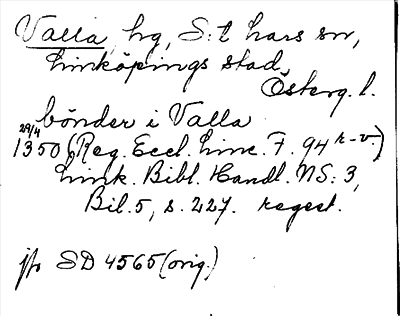 Valla, hg, S:t Lars sn,
Linköpings stad,
Österg. l.
bönder i Valla
29/4
1350 (Reg. Eccl. Linc. F. 94 r.-v.)
Link. Bibl. Handl. NS: 3,
Bil. 5, s. 227. regest.
jfr SD 4565 (orig.)